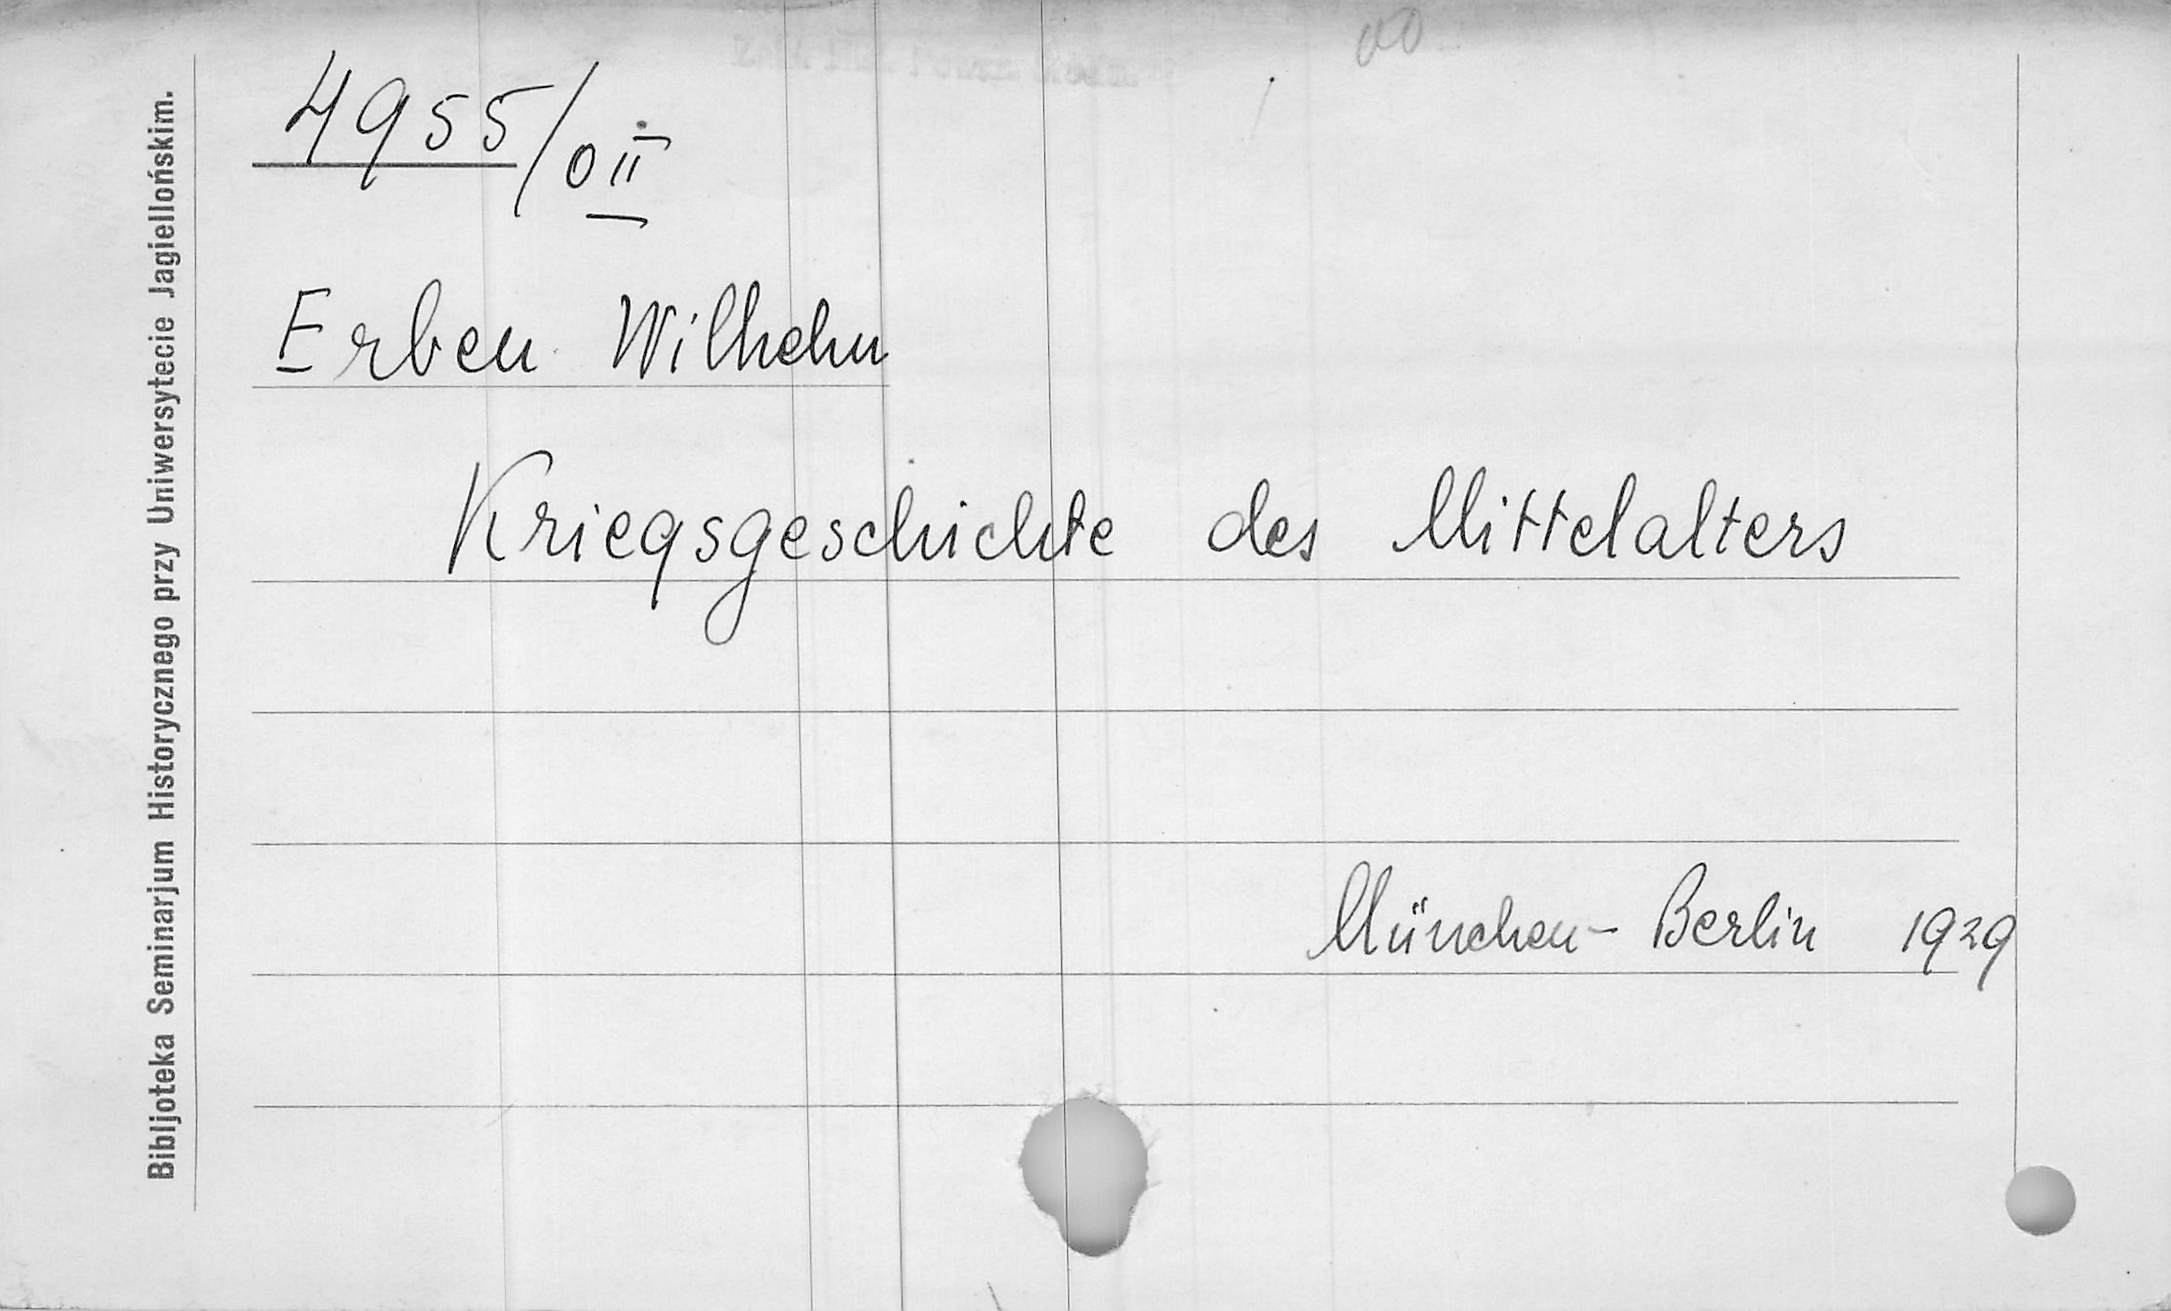 4955/0 II
Erben Wilhelm
Kriegsgeschichte des Mittelalters
München - Berlin 1929
Bibljoteka Seminarjum Historycznego przy Uniwersytecie Jagiellońskim.